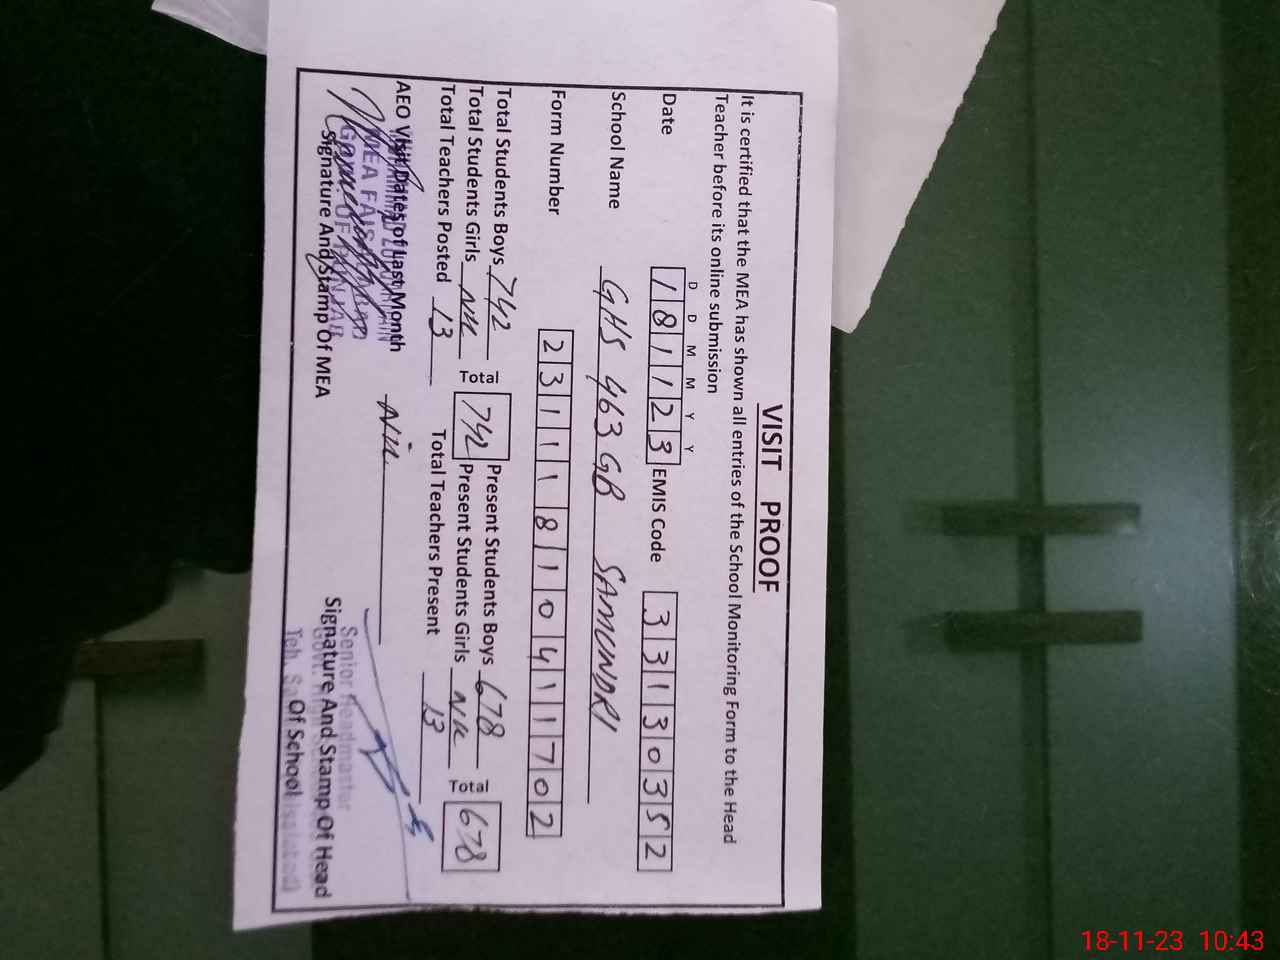 VISIT PROOF
It is certified that the MEA has shown all entries of the School Monitoring Form to the Head
Teacher before its online submission
D D M M Y Y
Date 181123 EMIS Code 33130352
School Name GHS 463 GB SAMUNDRI
Form Number 23111810411702
Total Students Boys 742 Total 742 Present Students Boys 678 Total 678
Total Students Girls Nil Present Students Girls Nil
Total Teachers Posted 13 Total Teachers Present 13
AEO Visit Dates of Last Month Nil
MEA
Signature And Stamp Of MEA
Senior Headmaster
Signature And Stamp Of Head
Of School
18-11-23 10:43